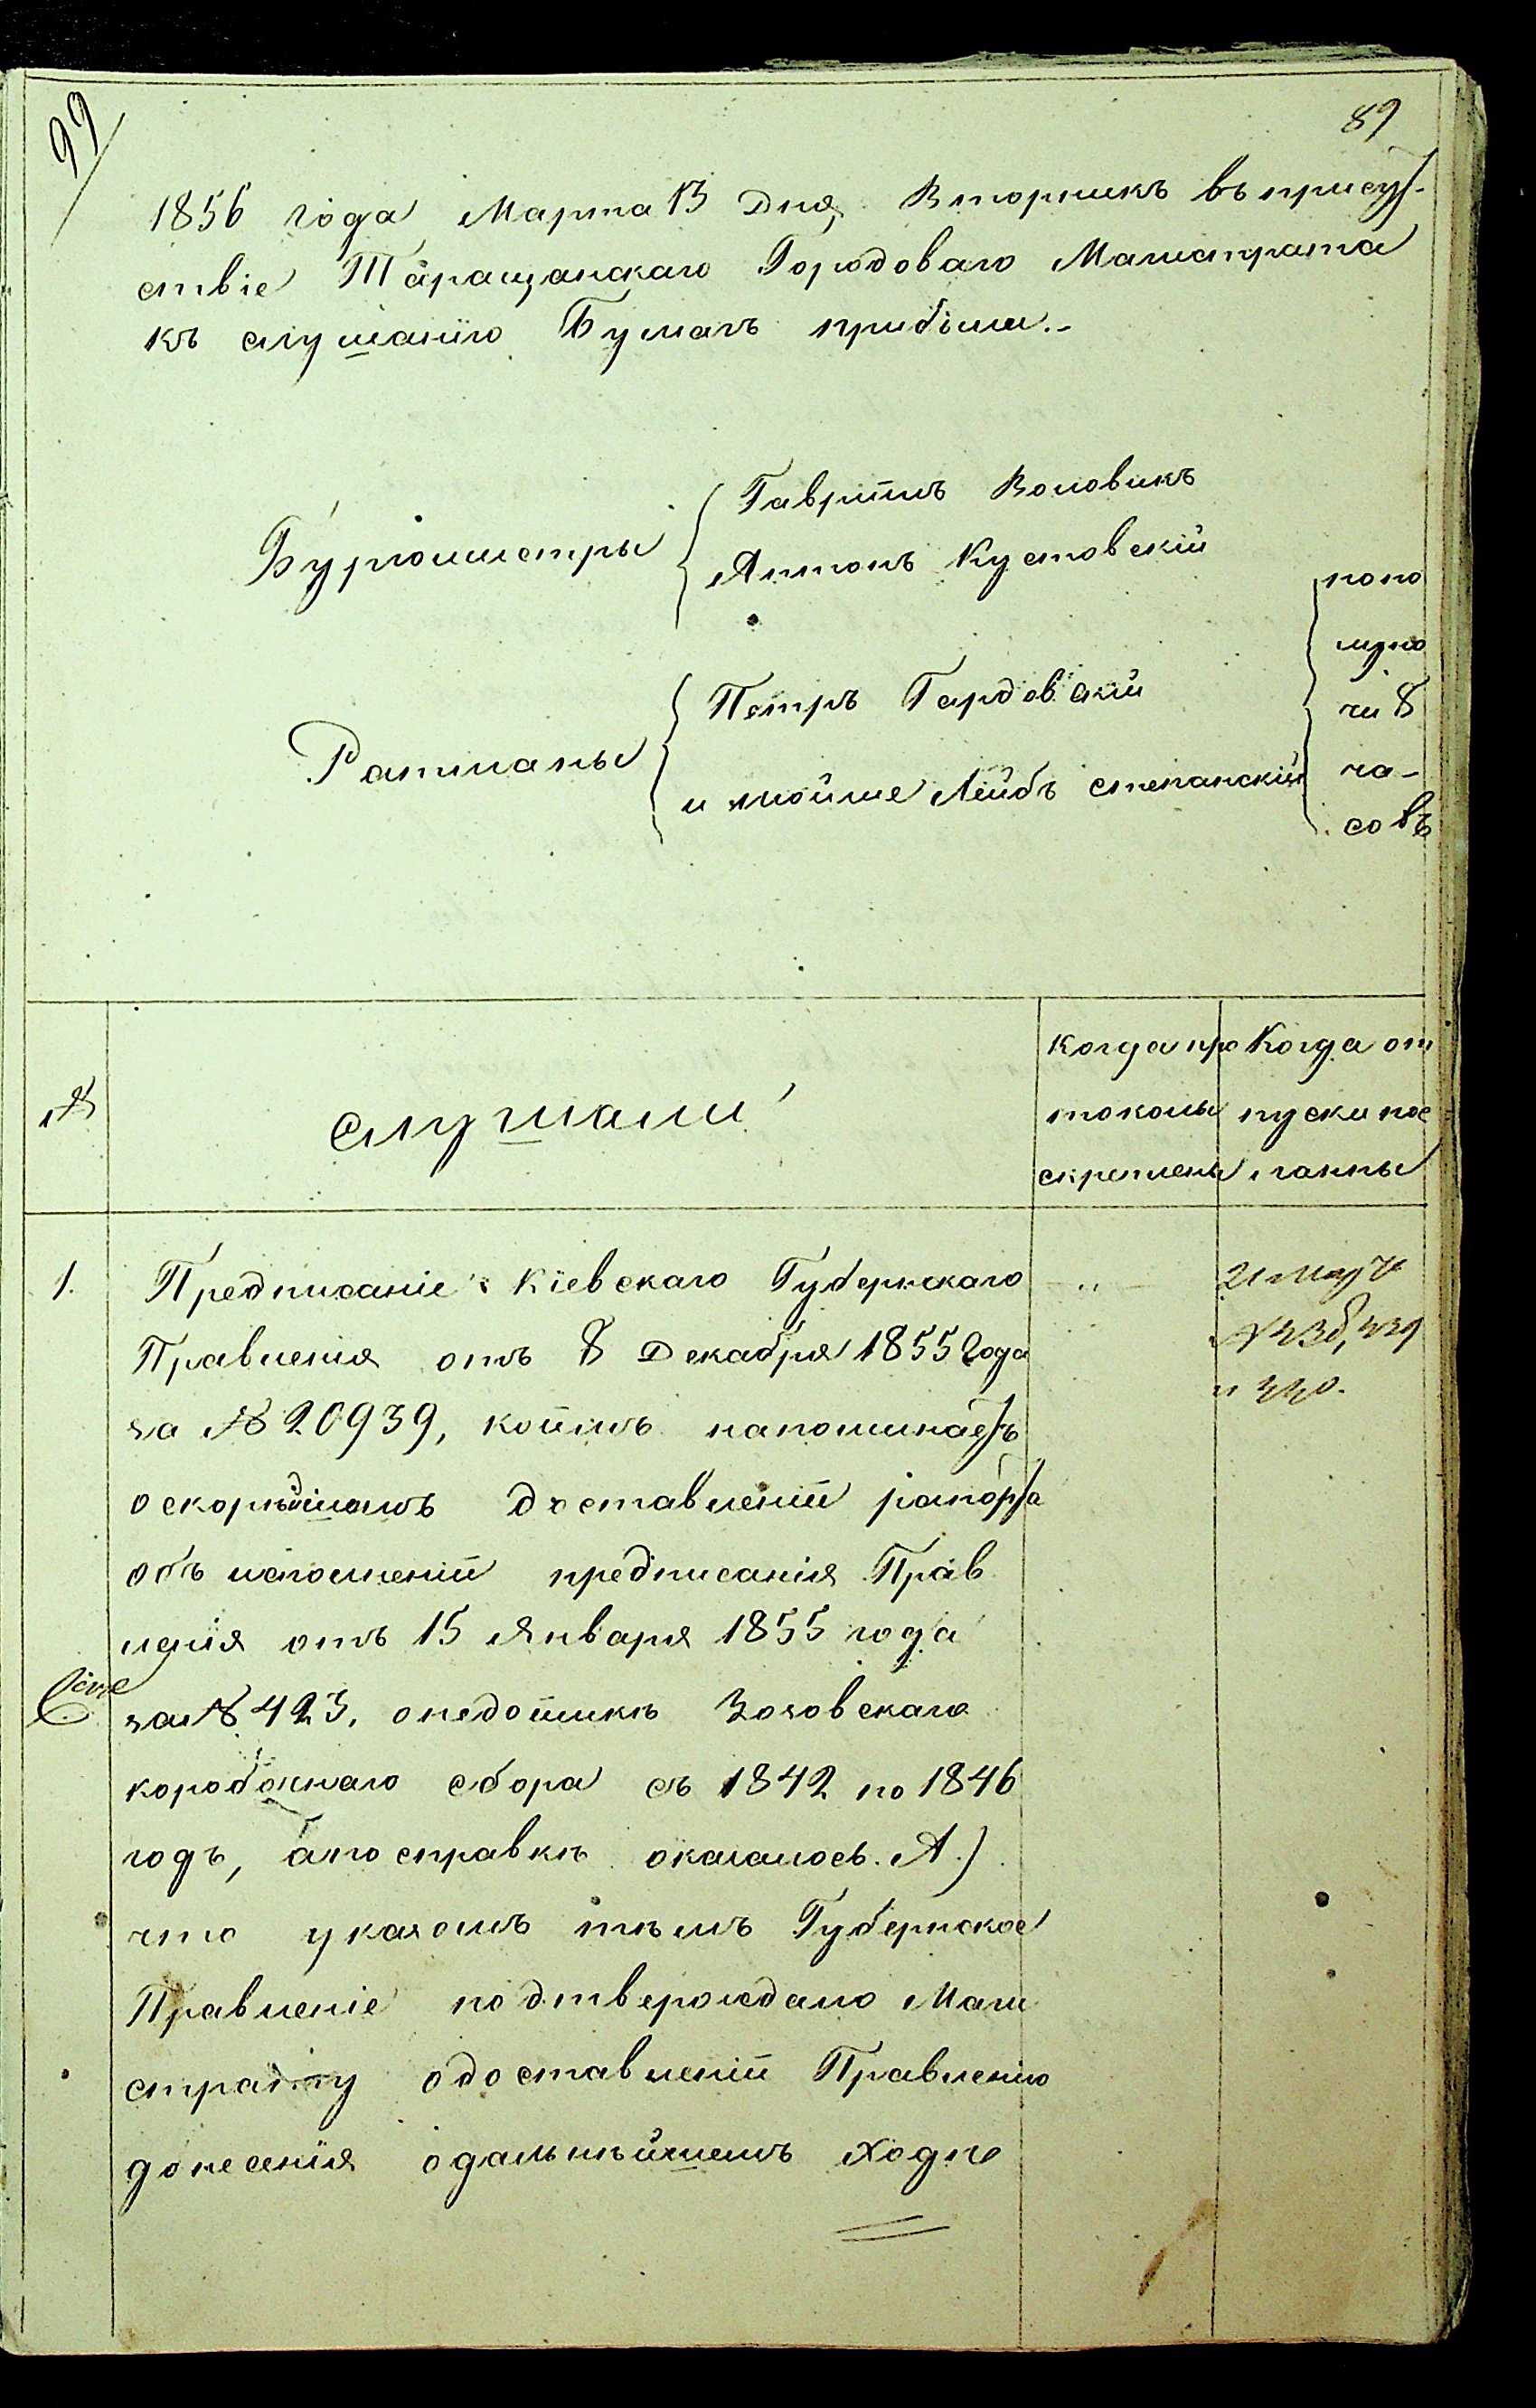 99
89
1856 года Марта 13 Дня, Вторникъ въ присут-
ствіе Таращанскаго Городоваго Магистрата
къ слушанію Бумагъ прибыли.-
Бургомистры
Гавріилъ Воловикъ
Антонъ Кустовскій
Ратманы
Петръ Гардовскій
и Мойше Лейбъ Степанскій
попо
луно
чи 8
ча-
совъ
№
Слушали
Когда про
токолы
скреплены
Когда от
пуски пос
ланны
1.
Предписаніе Кіевскаго Губернскаго
Правленія отъ 8 Декабря 1855 Года
за № 20939, коимъ напоминаетъ
о скорѣйшомъ доставленіи рапорта
объ исполненіи предписанія Прав
ленія отъ 15 Января 1855 года
за № 423, о недоимкѣ Зозовскаго
коробочнаго сбора съ 1842 по 1846
годъ, а по справкѣ оказалось. А.)
что указомъ тѣмъ Губернское
Правленіе подтверждало Маги
страту о доставленіи Правленію
донесенія о дальнѣйшемъ ходѣ